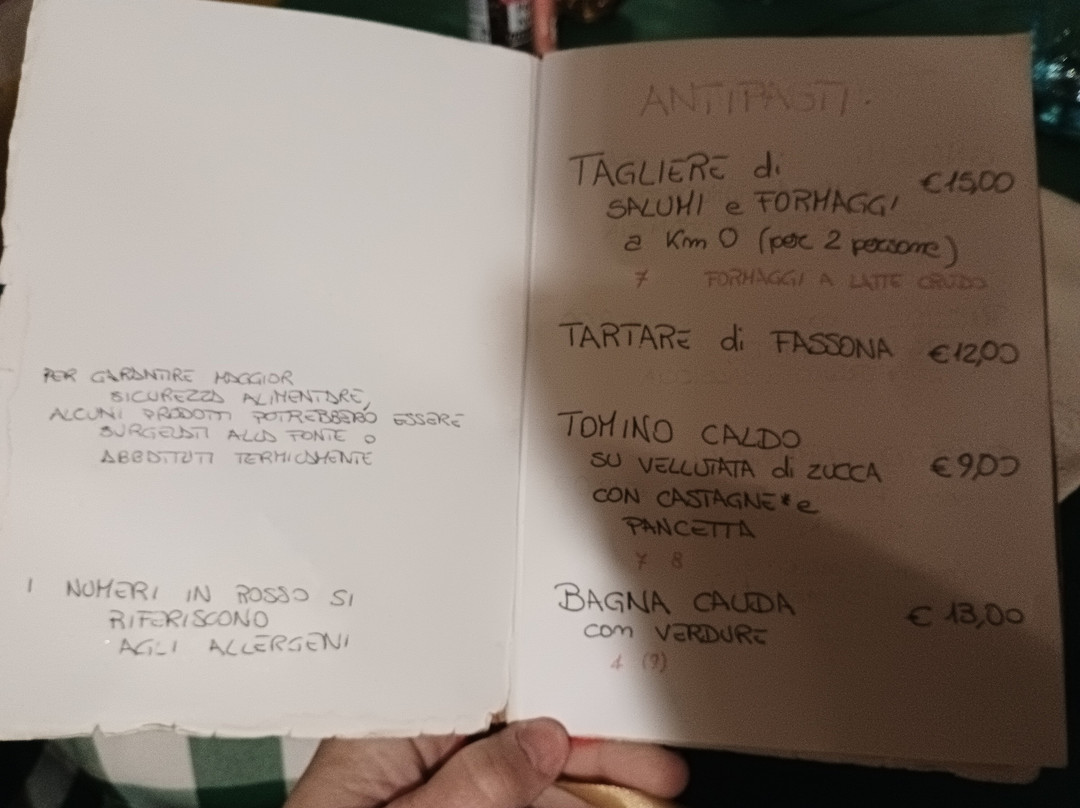 PER GARANTIRE MAGGIOR
SICUREZZA ALIMENTARE,
ALCUNI PRODOTTI POTREBBERO ESSERE
SURGELATI ALLA FONTE O
ABBATTUTI TERMICAMENTE
I NUMERI IN ROSSO SI
RIFERISCONO
AGLI ALLERGENI
ANTIPASTI.
TAGLIERE di €15,00
SALUMI e FORMAGGI
a Km 0 (per 2 persone)
7 FORMAGGI A LATTE CRUDO
TARTARE di FASSONA €12,00
TOMINO CALDO
SU VELLUTATA di ZUCCA €9,00
CON CASTAGNE* e
PANCETTA
7 8
BAGNA CAUDA € 13,00
con VERDURE
4 (9)